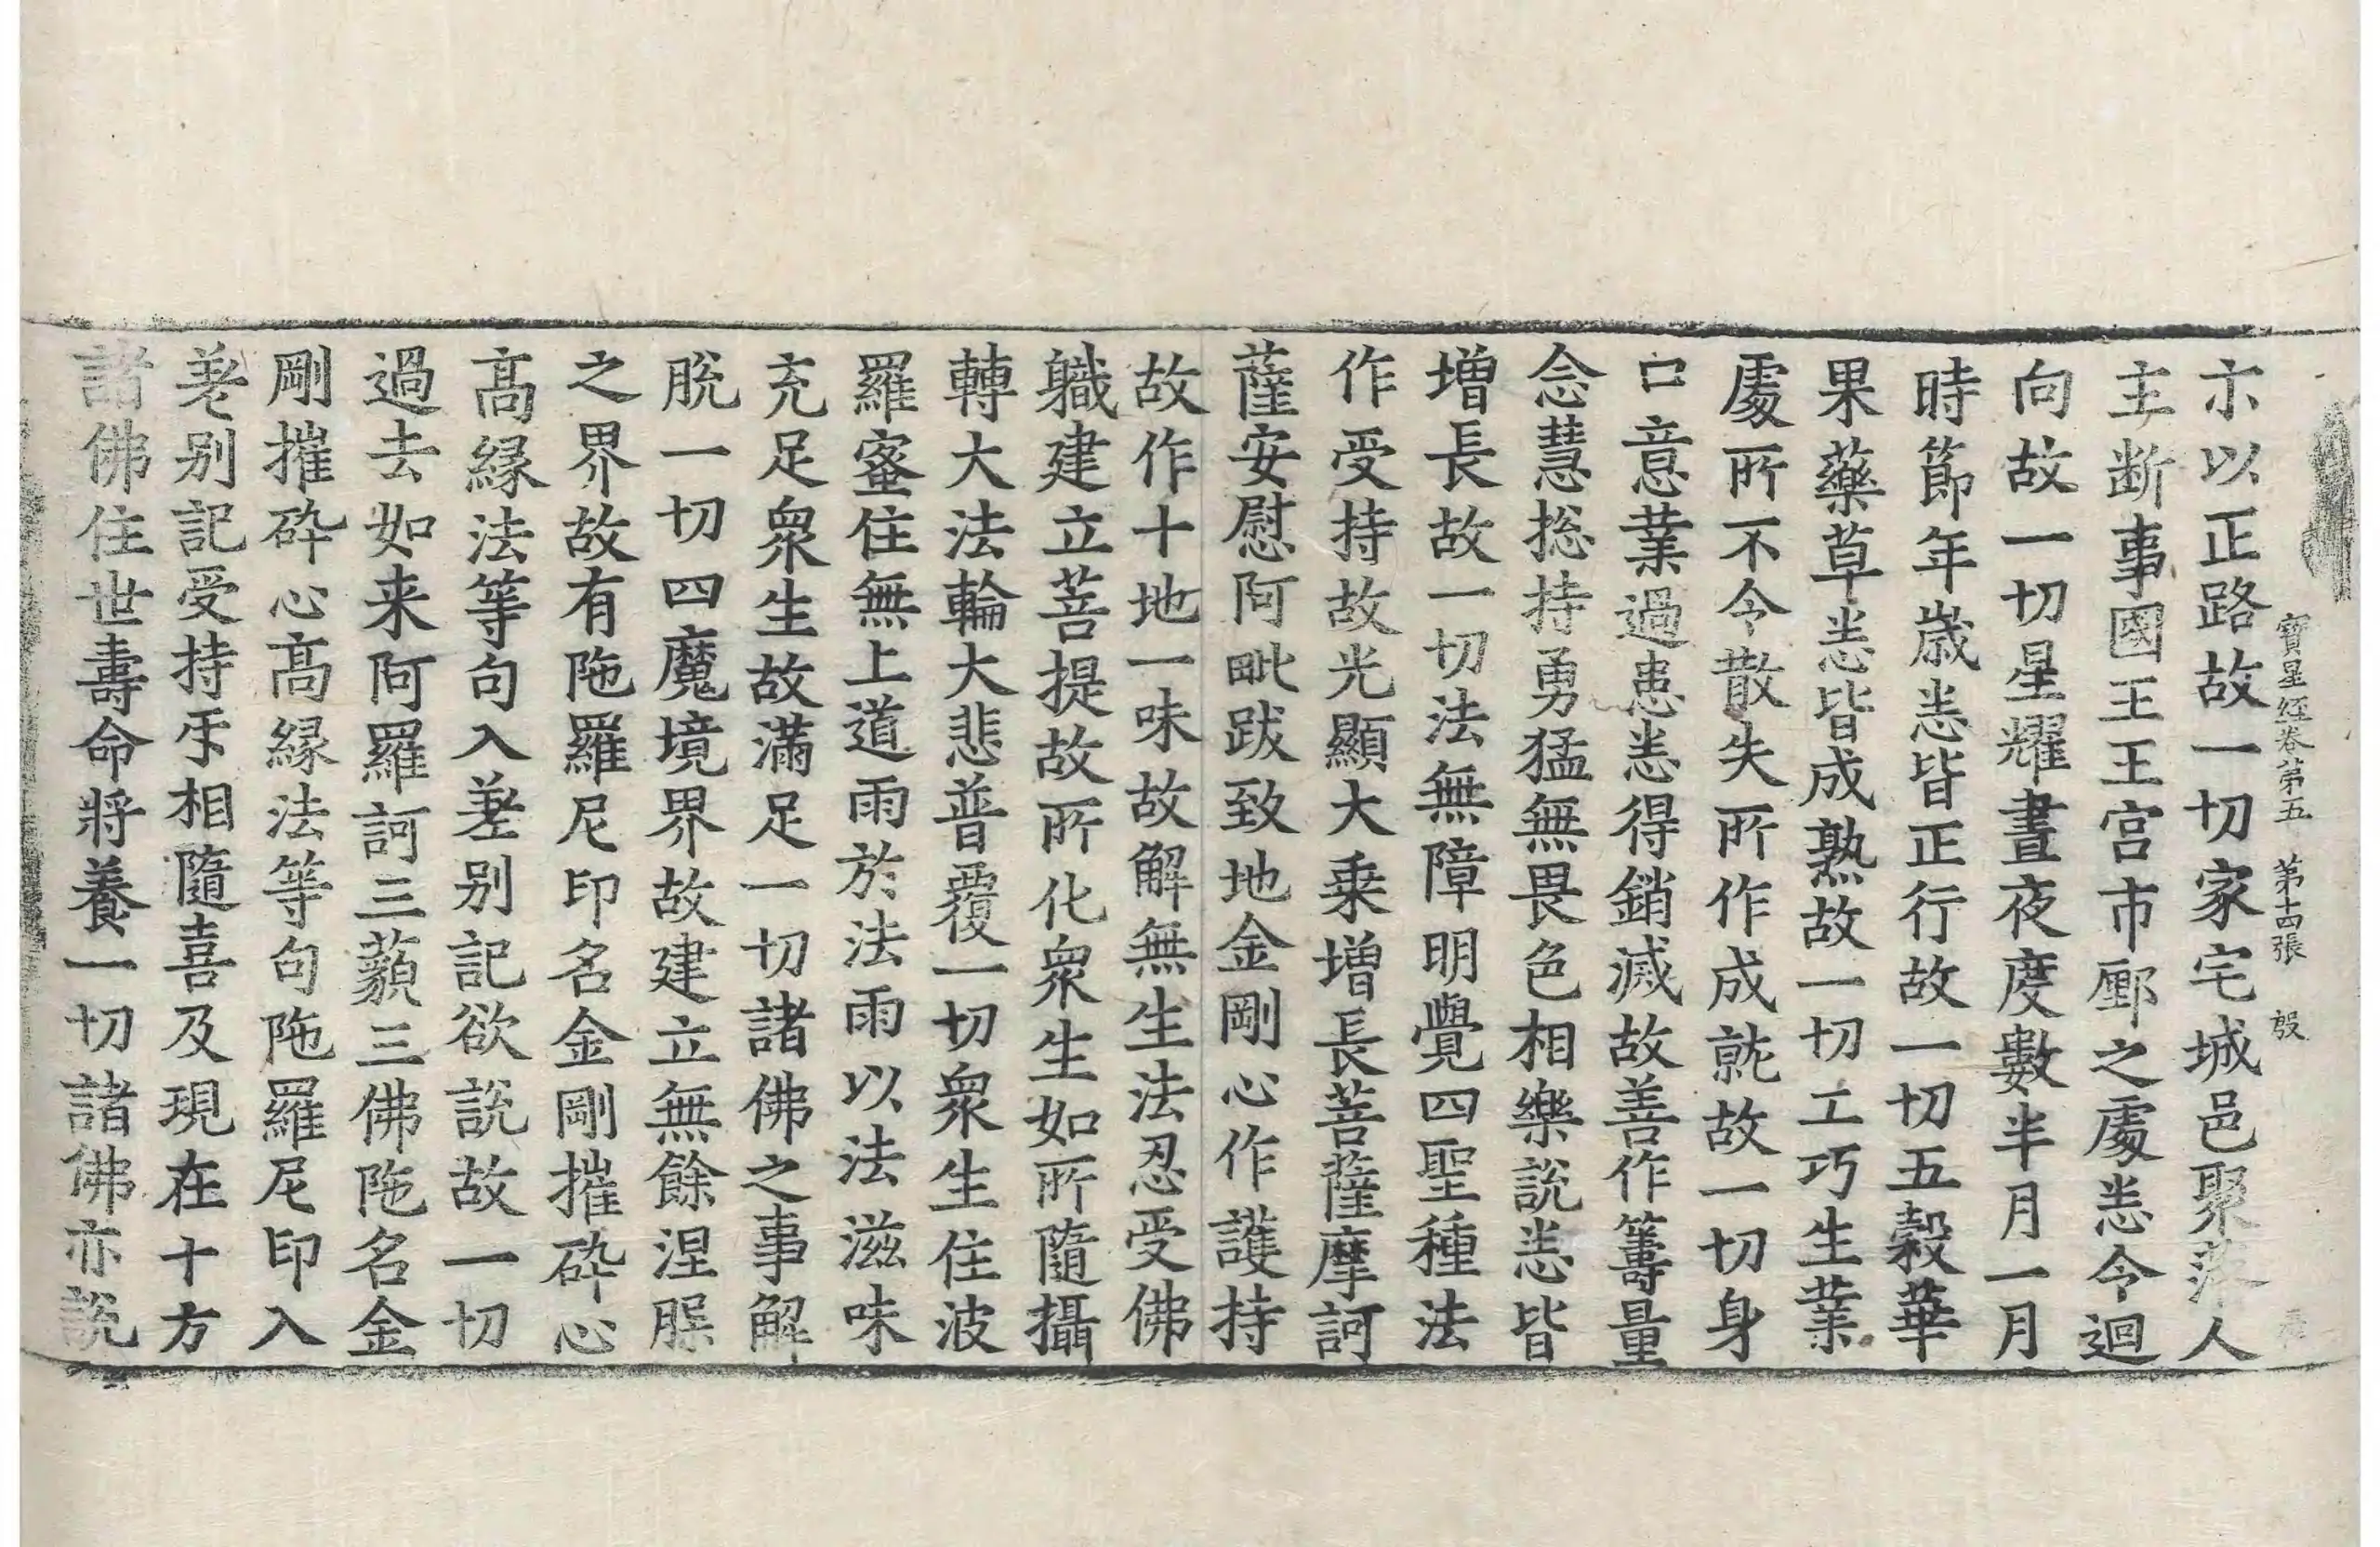 寶星經卷第五　第十四張　殷
示以正路故一切家宅城邑聚落人
主断事國王王宫市廛之處恙令迴
向故一切星耀晝夜度數半月一月
時節年歲恙皆正行故一切五穀華
果藥草恙皆成熟故一切工巧生業
處所不令散失所作成就故一切身
口意業過患恙得銷滅故善作籌量
念慧捴持勇猛無畏色相樂說恙皆
增長故一切法無障明覺四聖種法
作受持故光顯大乗增長菩薩摩訶
薩安慰阿毗跋致地金剛心作護持
故作十地一味故解無生法忍受佛
軄建立菩提故所化衆生如所隨攝
轉大法輪大悲普覆一切衆生住波
羅蜜住無上道雨於法雨以法滋味
充足衆生故滿足一切諸佛之事解
脫一切四魔境界故建立無餘涅槃
之界故有陁羅尼印名金剛摧碎心
髙緣法等句入差别記欲說故一切
過去如来阿羅訶三藐三佛陁名金
剛摧碎心髙緣法等句陁羅尼印入
差别記受持乐相隨喜及現在十方
諸佛住世壽命將養一切諸佛亦說